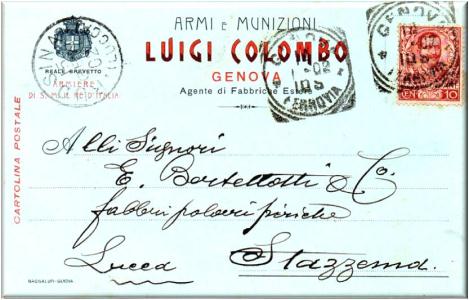 ARMI E MUNIZIONI
LUIGI COLOMBO
GENOVA
Agente di Fabbriche Estere
REALE BREVETTO
ARMIERE
DI S. M. IL RE D'ITALIA
GENOVA
FERROVIA
GENOVA
CENT. 10
CARTOLINA POSTALE
Alli Signori
E. Bertellotti & C.
fabbri polveri piriche
Lucca
Stazzema